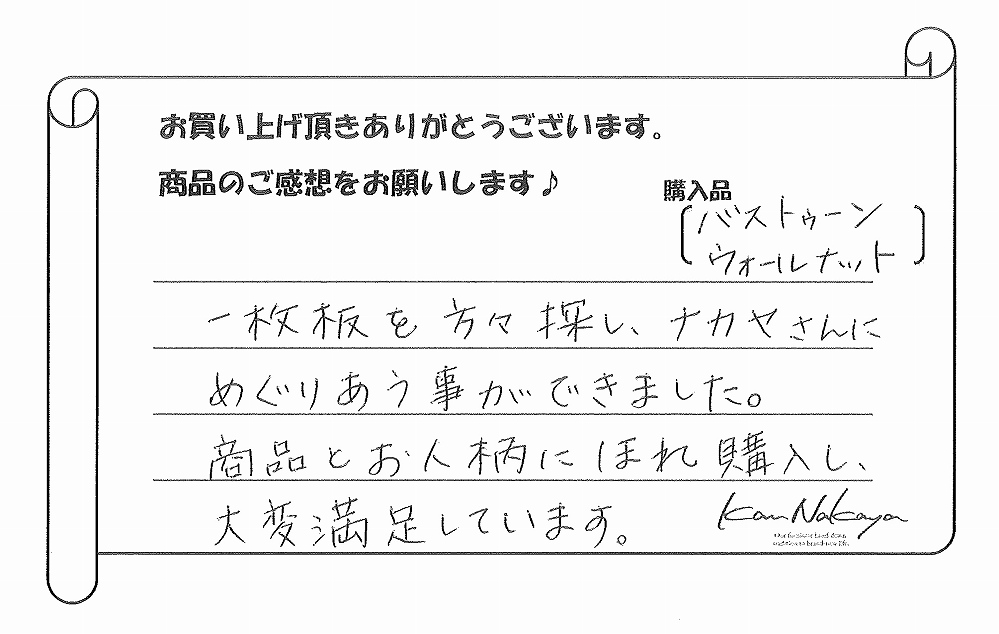 お買い上げ頂きありがとうございます。
商品のご感想をお願いします♪
購入品
バストゥーン
ウォールナット
一枚板を方々探し、ナカヤさんに
めぐりあう事ができました。
商品とお人柄にほれ購入し、
大変満足しています。
Kan Nakaya